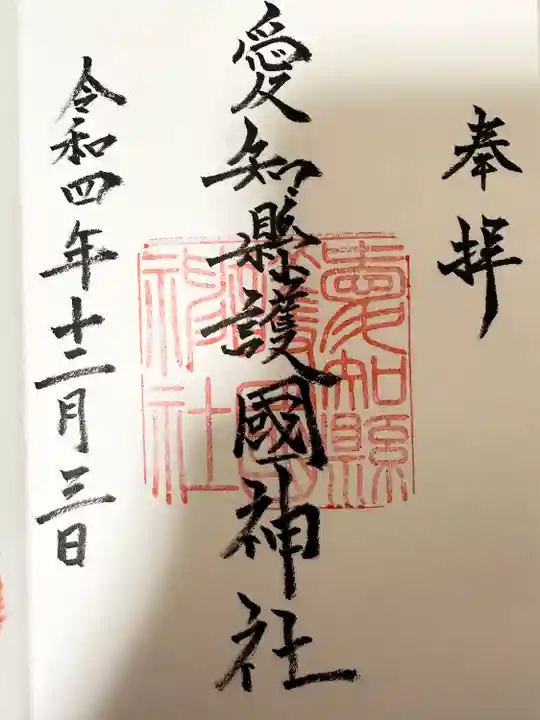 奉拝
愛知縣護國神社
愛知縣
護國
神社
令和四年十二月三日